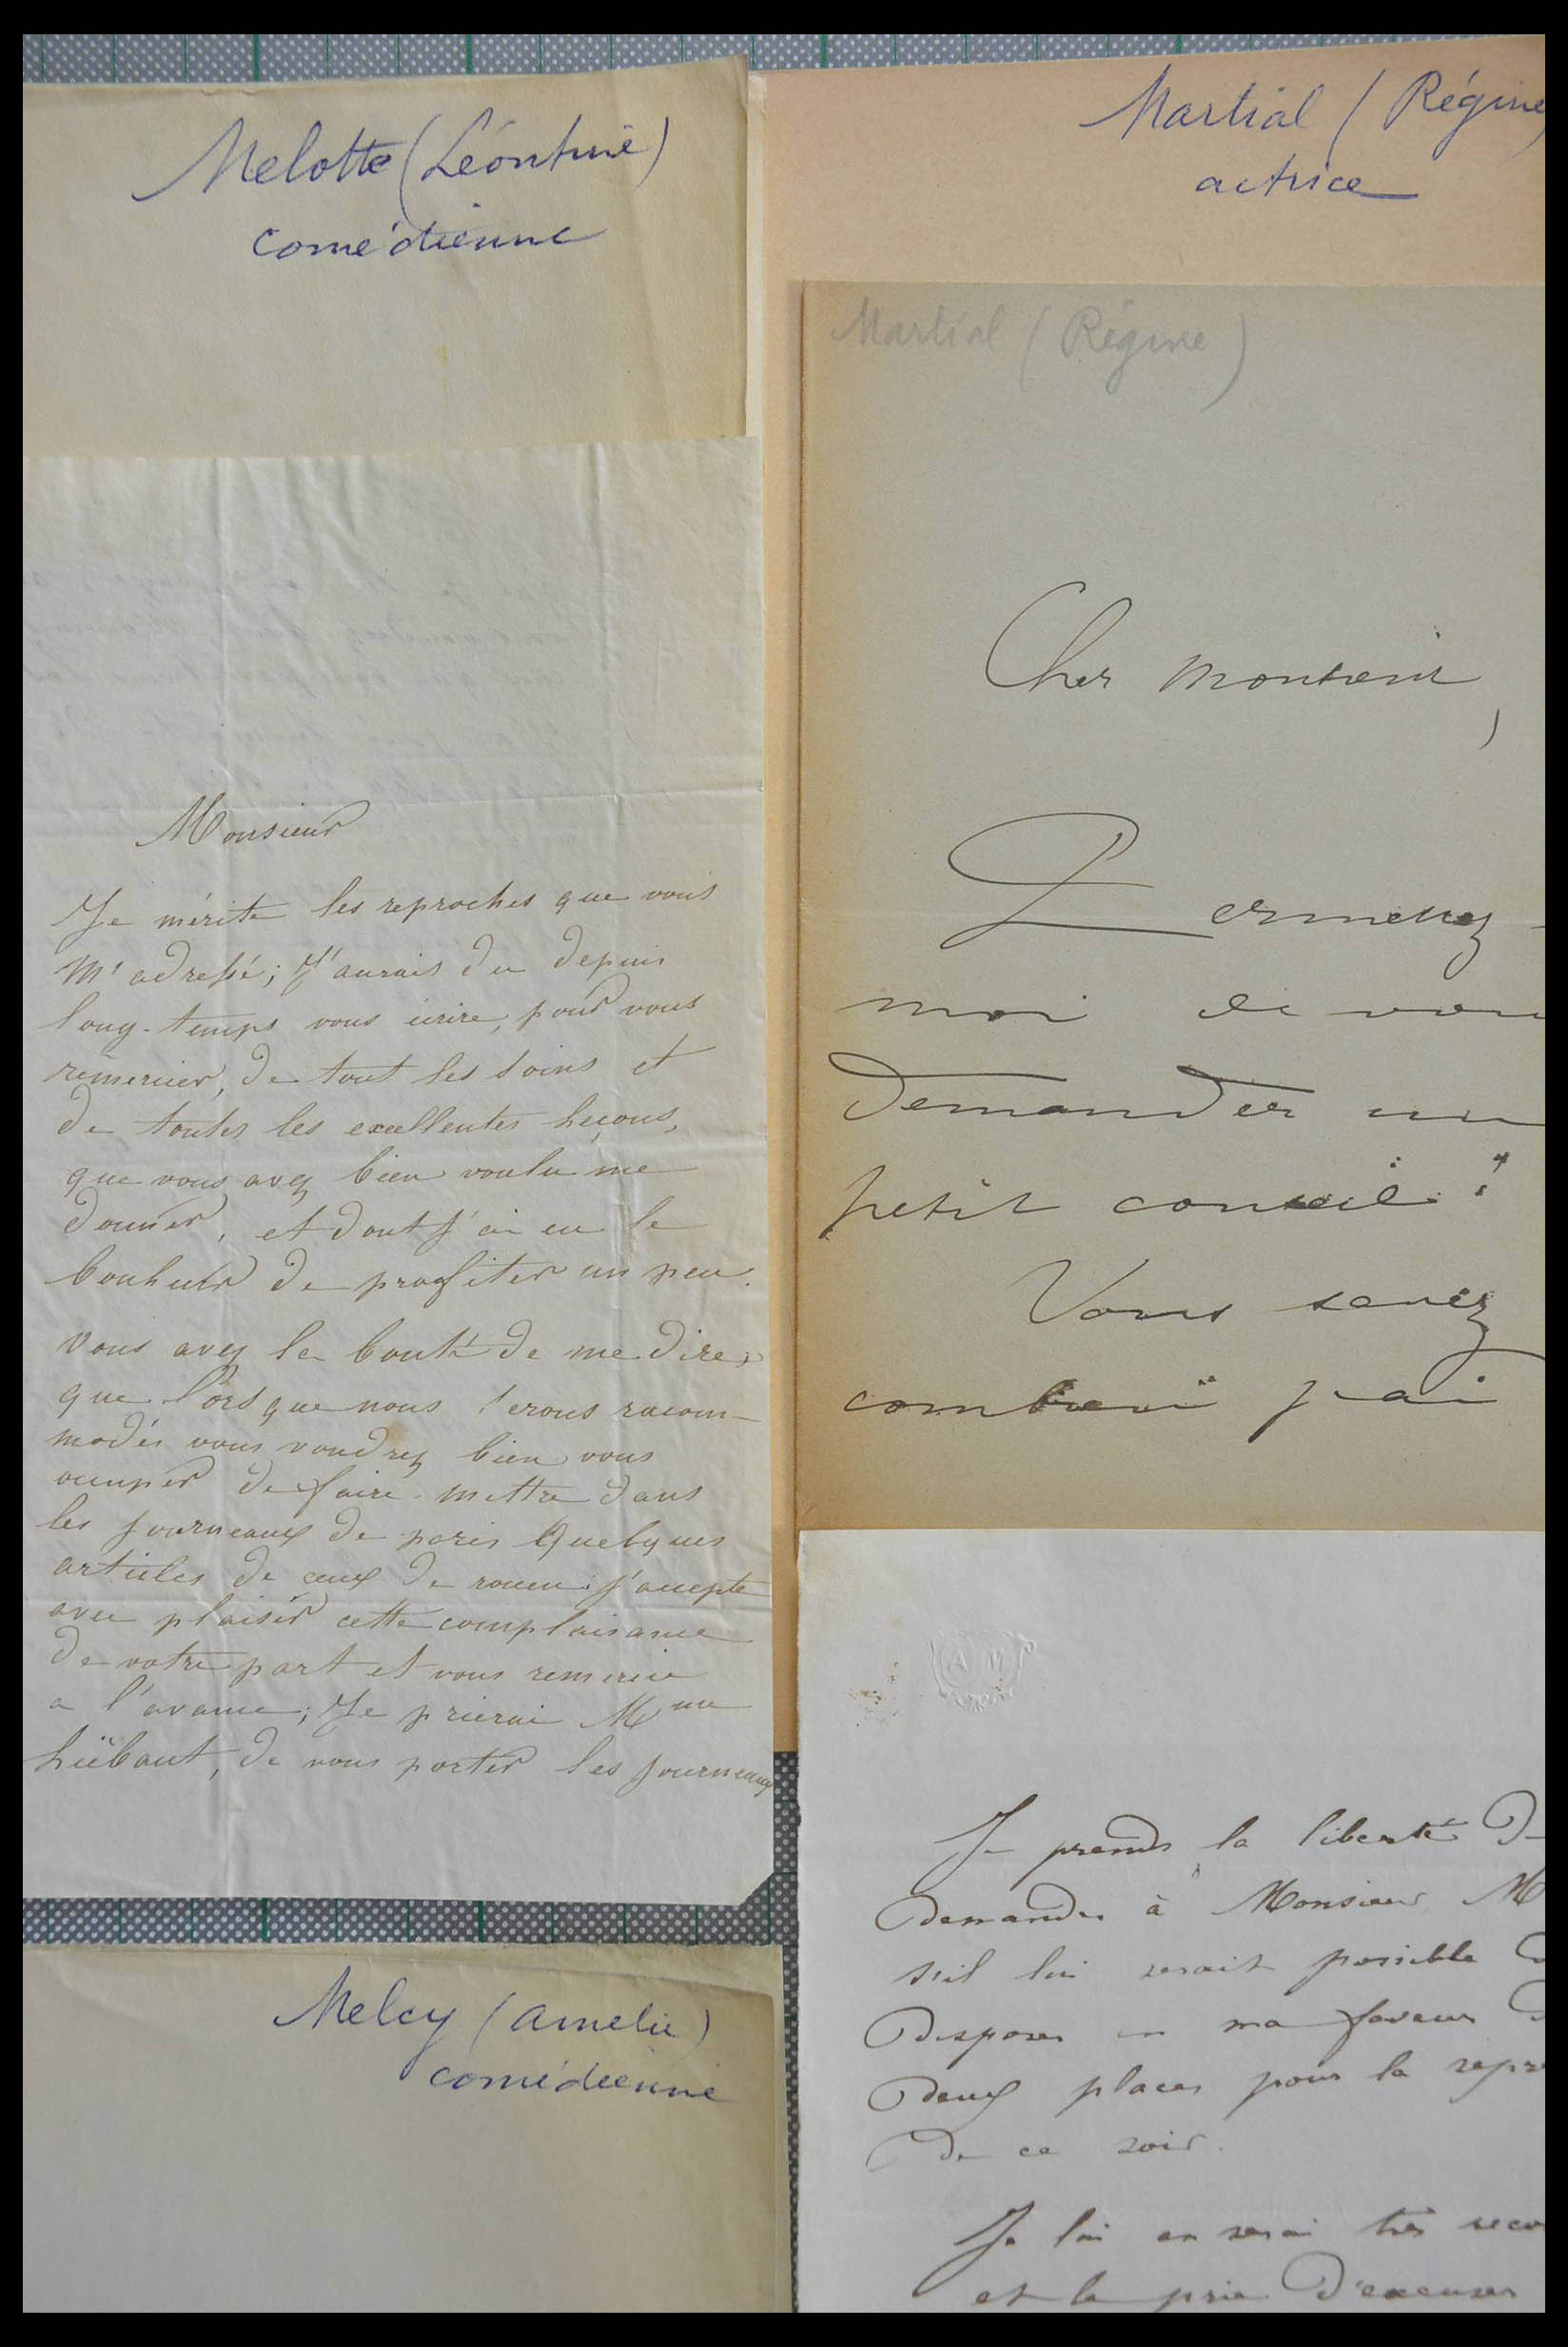 Melotte (Léontine)
comédienne
Monsieur
Je mérite les reproches que vous
m'adressé; J'aurais du depuis
long-temps vous écrire, pour vous
remercier, de tout les soins et
de toutes les excellentes leçons,
que vous avez bien voulu me
donner, et dont j'ai eu le
bonheur de profiter un peu.
vous avez la bonté de me dire,
que lorsque nous serons racom-
modés vous voudrez bien vous
occuper de faire mettre dans
les journeaux de paris quelques
articles de ceux de rouen; j'accepte
avec plaisir cette complaisance
de votre part et vous remercie
a l'avance; Je prierai Mme
de vous porter les journeaux
Melcy (Amelie)
comédienne
Martial (Régine
actrice
Martial (Régine)
Cher Monsieur,
Permettez-
moi de vou
demander un
petit conseil:
Vous savez
combien j'ai
A M
Je prends la liberté d
demander à Monsieur M
s'il lui serait possible
disposer en ma faveur
deux places pour la repr
de ce soir.
Je lui en serai très reco
et le prie d'excuser